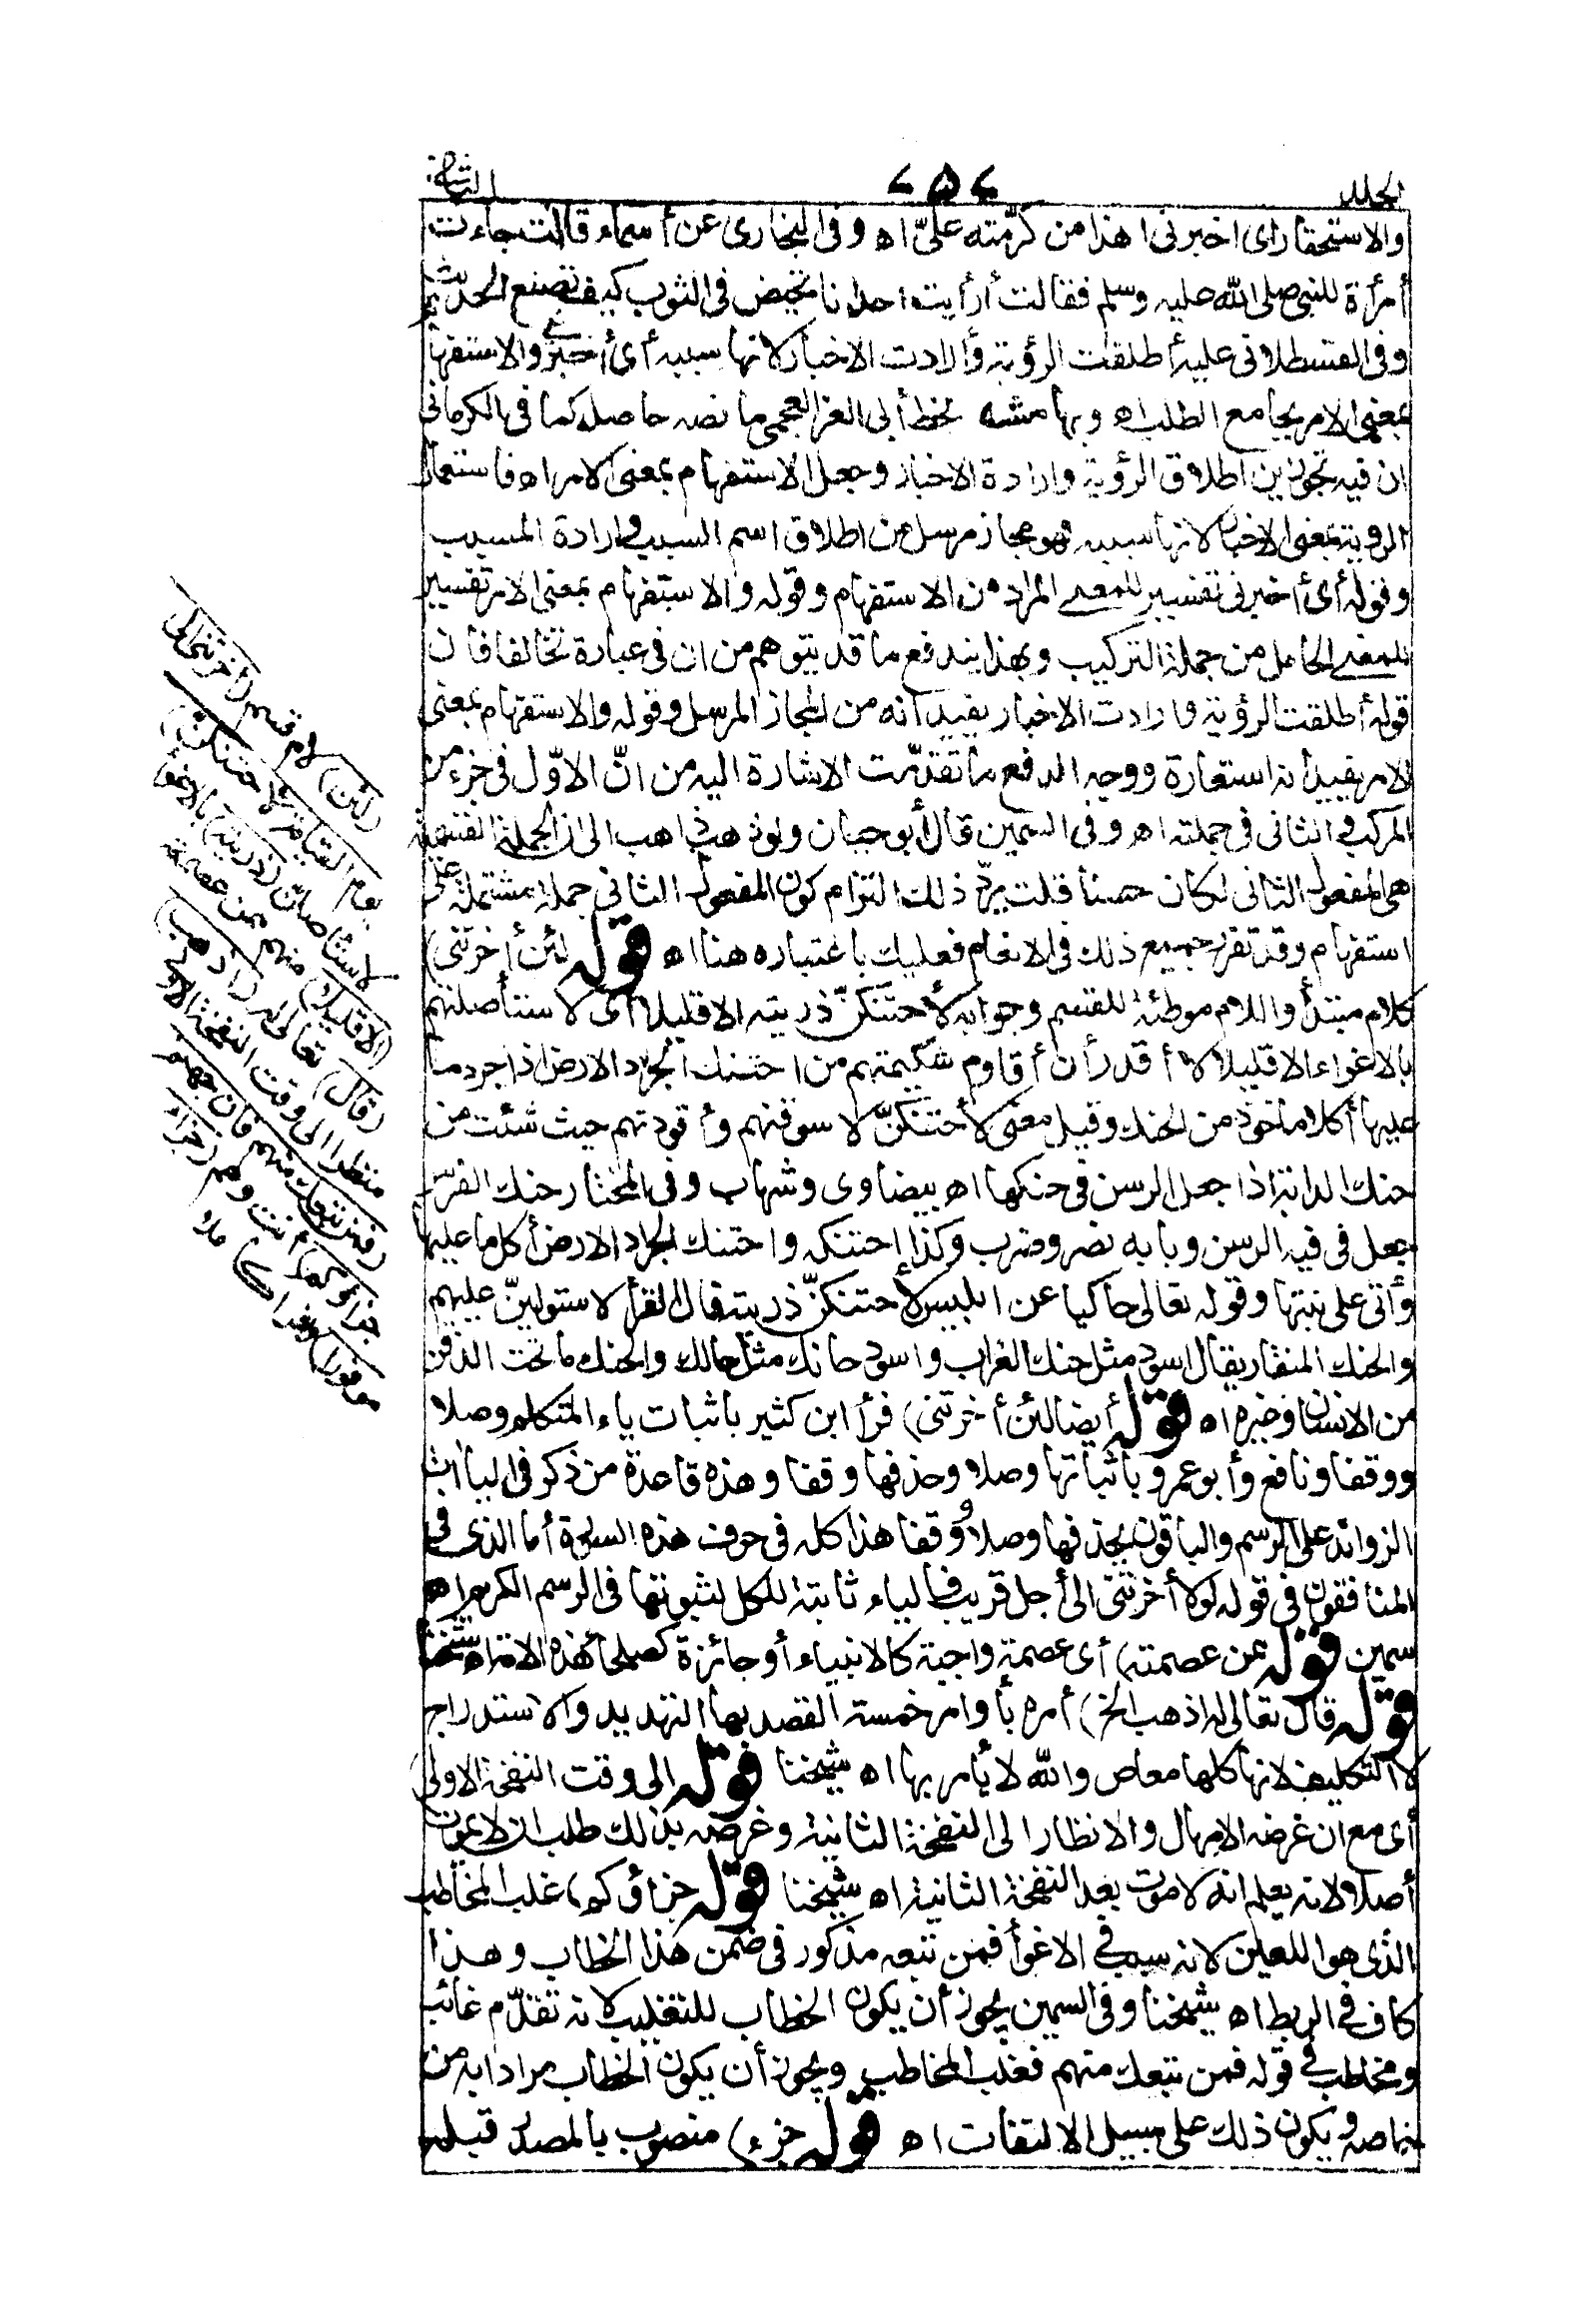 الجلد
الثانى
والاستحقار اى اخبرنى اهذا من كرّمته علىّ اه وفى البخارى عن أسماء قالت جاءت
أمرأة للنبى صلى الله عليه وسلم فقالت أرأيت احدانا تحيض فى الثوب كيف تصنع الحديث
وفى القسطلانى عليه أطلقت الرؤية وأرادت الاخبار لانها سببه أى أخبرنى والاستفهام
بمعنى الامر بجامع الطلب اه وبهامشه بخط أبى العز العجمى ما نصه حاصله كما فى الكرمانى
ان فيه تجوزين اطلاق الرؤية وارادة الاخبار وجعل الاستفهام بمعنى الامر اه فاستعمال
الرؤية بمعنى الاخبار لانها سببه فهو مجاز مرسل من اطلاق اسم السبب وارادة المسبب
وقوله أى أخبرنى تفسير للمعنى المراد من الاستفهام وقوله والاستفهام بمعنى الامر تفسير
للمعنى الحاصل من جملة التركيب وبهذا يندفع ما قد يتوهم من ان فى عبارة تخالفا فان
قوله أطلقت الرؤية وارادت الاخبار يفيد أنه من المجاز المرسل وقوله والاستفهام بمعنى
الامر يفيد انه استعارة ووجه الدفع ما تقدّمت الاشارة اليه من انّ الاوّل فى جزء من
المركب والثانى فى جملته اه وفى السمين قال أبو حيان ولو ذهب ذاهب الى ان الجملة القسمية
هى المفعول الثانى لكان حسنا قلت يردّ ذلك التزام كون المفعول الثانى جملة مشتملة على
استفهام وقد تقرر جميع ذلك فى الانعام فعليك باعتباره هنا اه قوله لئن أخرتنى)
كلام مبتدأ واللام موطئة للقسم وجوابه لأحتنكنّ ذريته الا قليلا أى لاستأصلنهم
بالاغواء الا قليلا لا أقدر أن أقاوم شكيمتهم من احتنك الجراد الارض اذا جرد ما
عليها أكلا مأخوذ من الحنك وقيل معنى لأحتنكنّ لاسوقنهم وأقودنهم حيث شئت من
حنك الدابة اذا جعل الرسن فى حنكها اه بيضاوى وشهاب وفى المختار حنك الفرس
جعل فى فيه الرسن وبابه نصر وضرب وكذا إحتنكه واحتنك الجراد الارض أكل ما عليها
وأتى على نبتها وقوله تعالى حاكيا عن ابليس لأحتنكنّ ذريته قال الفرأ لاستولينّ عليهم
والحنك المنقار يقال اسود مثل حنك الغراب واسود حانك مثل حالك والحنك ما تحت الذقن
من الانسان وغيره اه قوله أيضا لئن أخرتنى) قرأ ابن كثير باثبات ياء المتكلم وصلا
ووقفا ونافع وأبو عمرو باثباتها وصلا وحذفها وقفا وهذه قاعدة من ذكر فى الياآت
الزوائد على الرسم والباقون بحذفها وصلا ووقفا هذا كله فى حرف هذه السورة أما الذى فى
المنافقون فى قوله لولا أخرتنى الى أجل قريب فالياء ثابتة للكل لثبوتها فى الرسم الكريم اه
سمين قوله ممن عصمته) أى عصمة واجبة كالانبياء أو جائزة كصلحاء هذه الامة اه شيخنا
قوله قال تعالى له اذهب الخ) أمره بأوامر خمسة القصد بها التهديد والاستدراج
لا التكليف لانها كلها معاص والله لا يأمر بها اه شيخنا قوله الى وقت النفخة الاولى)
أى مع ان غرضه الامهال والانظار الى النفخة الثانية وغرضه بذلك طلب ان لا يموت
أصلا ولانه يعلم انه لا موت بعد النفخة الثانية اه شيخنا قوله جزاؤكم) غلب المخاطب
الذى هو اللعين لانه سبب فى الاغوأ فمن تبعه مذكور فى ضمن هذا الخطاب وهذا
كاف فى الربط اه شيخنا وفى السمين يجوز أن يكون الخطاب للتغليب لانه تقدّم غائب
ومخاطب فى قوله فمن تبعك منهم فغلب المخاطب ويجوز أن يكون الخطاب مرادا به من
خاصة ويكون ذلك على سبيل الالتفات اه قوله جزء) منصوب بالمصدر قبله
(لئن) لام قسم (أخرتنى الى
يوم القيامة لاحتنكن)
لاستأصلن (ذريته) بالاغوأ
(الا قليلا) منهم ممن عصمته
(قال) تعالى له (اذهب)
منظرا الى وقت النفخة الاولى
(فمن تبعك منهم فان جهنم
جزاؤكم) أنت وهم (جزاء
موفورا) وافرا كاملا